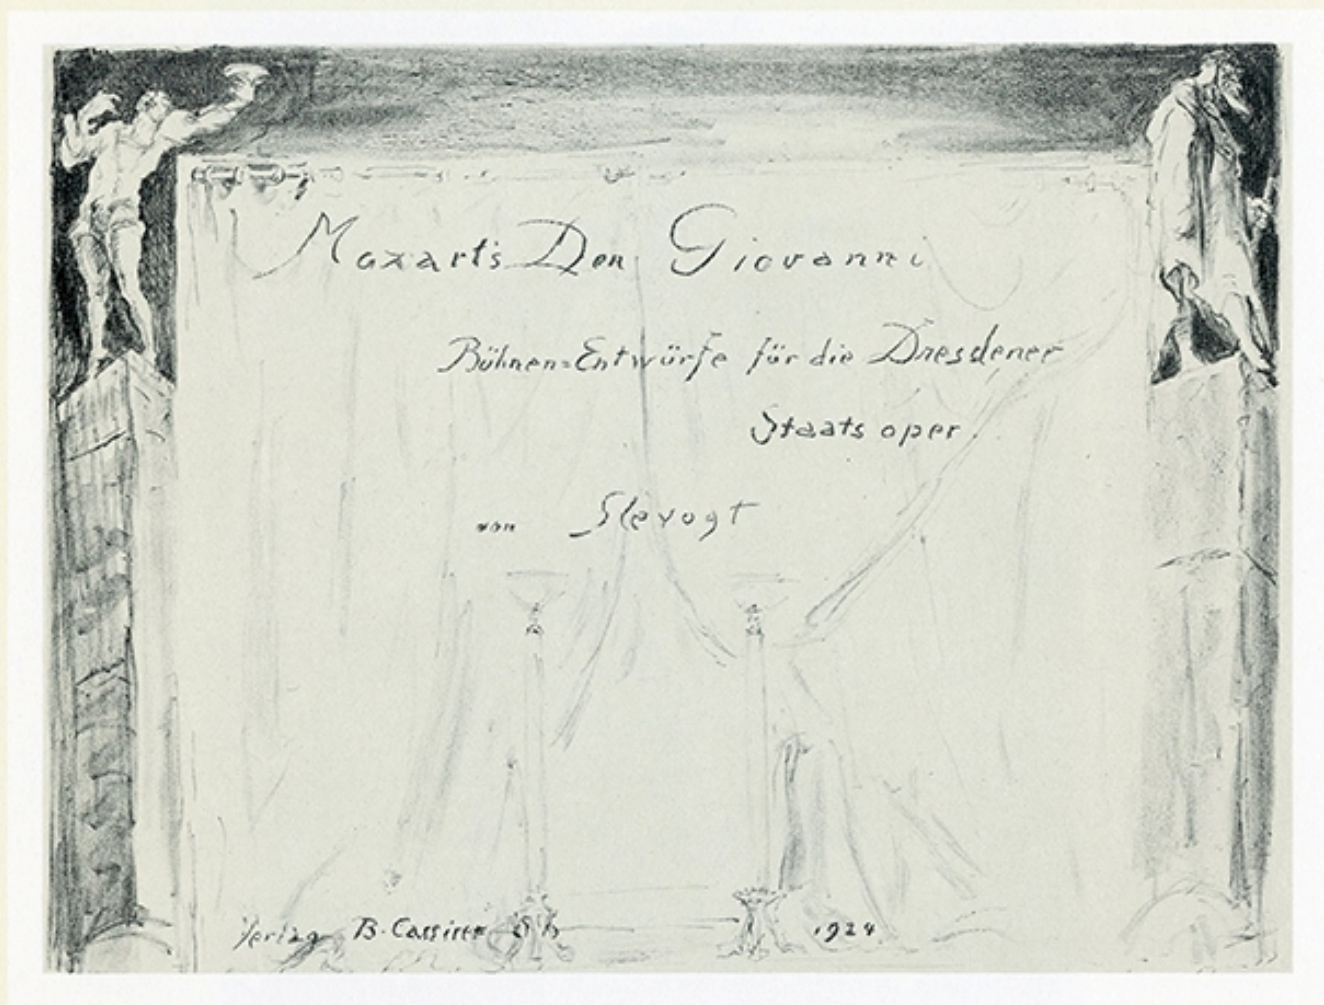 Mozart's Don Giovanni
Bühnen=Entwürfe für die Dresdener
Staatsoper.
von Slevogt
Verlag B. Cassirer 1924